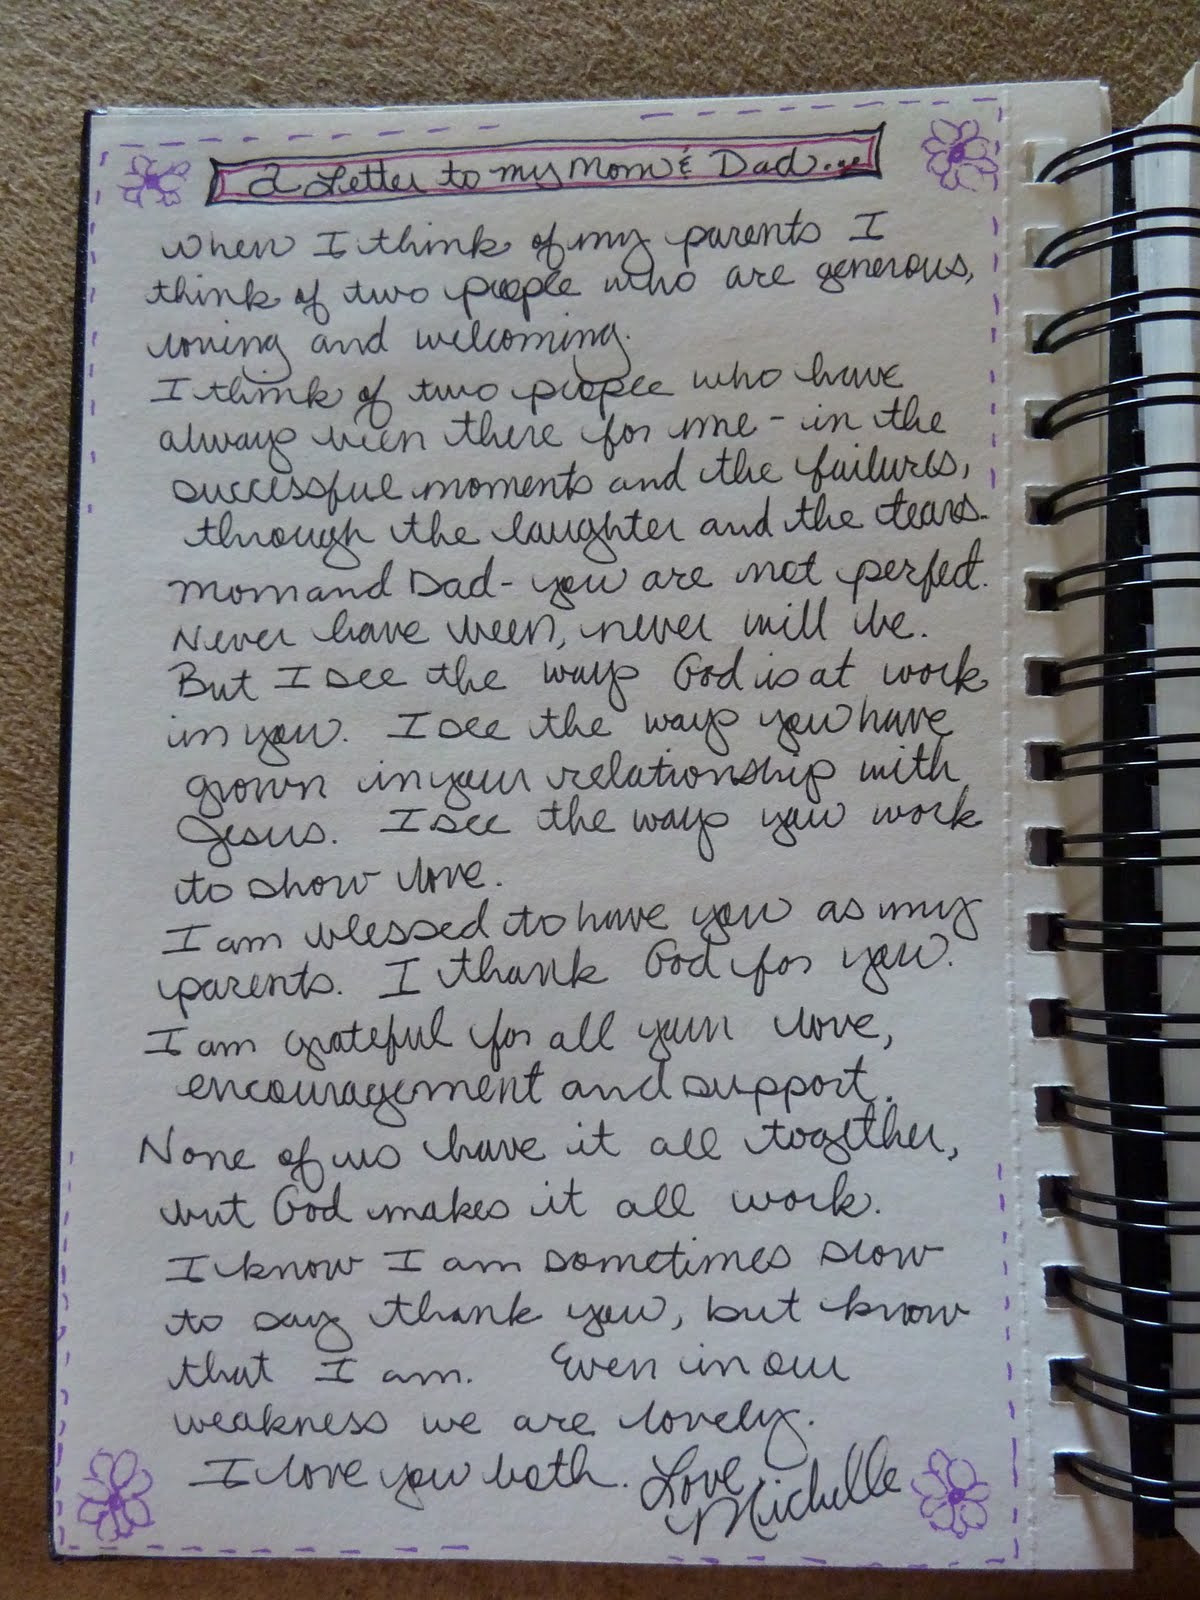 A Letter to my Mom & Dad...
When I think of my parents I
think of two people who are generous,
loving and welcoming.
I think of two people who have
always been there for me - in the
successful moments and the failures,
through the laughter and the tears.
Mom and Dad - you are not perfect.
Never have been, never will be.
But I see the ways God is at work
in you. I see the ways you have
grown in your relationship with
Jesus. I see the ways you work
to show love.
I am blessed to have you as my
parents. I thank God for you.
I am grateful for all your love,
encouragement and support.
None of us have it all together,
but God makes it all work.
I know I am sometimes slow
to say thank you, but know
that I am. Even in our
weakness we are lovely.
I love you both. Love
Michelle